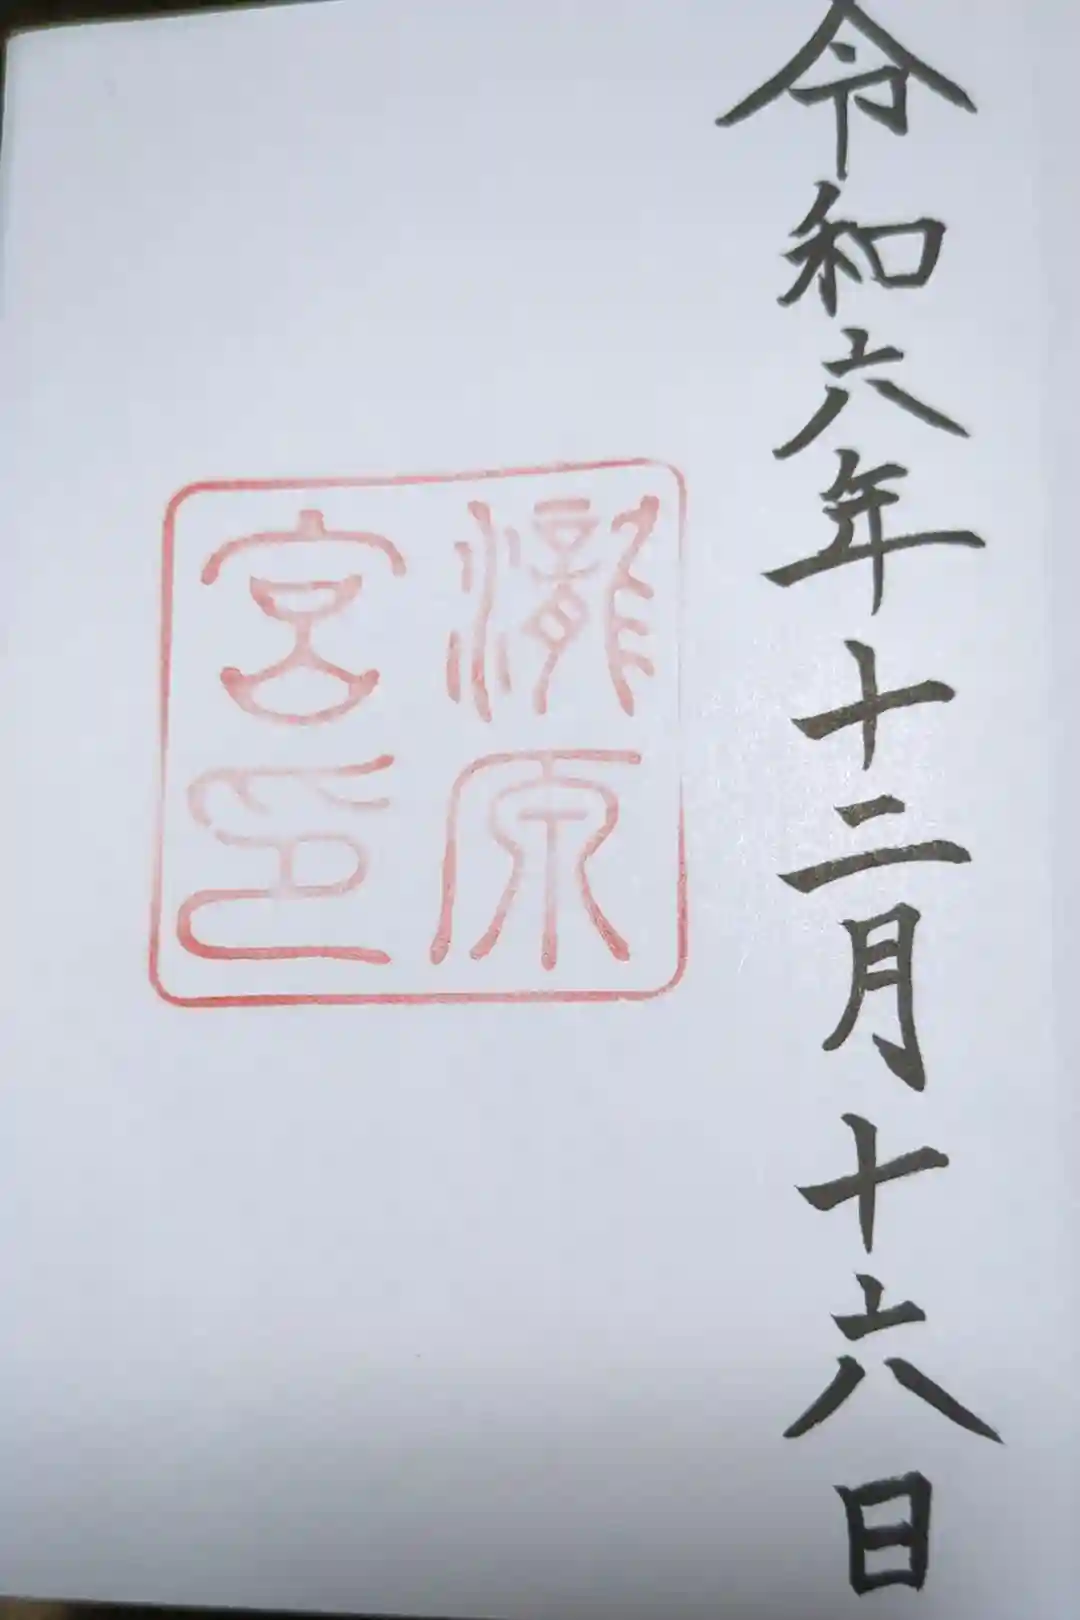 令和六年十二月十六日
瀧原
宮印